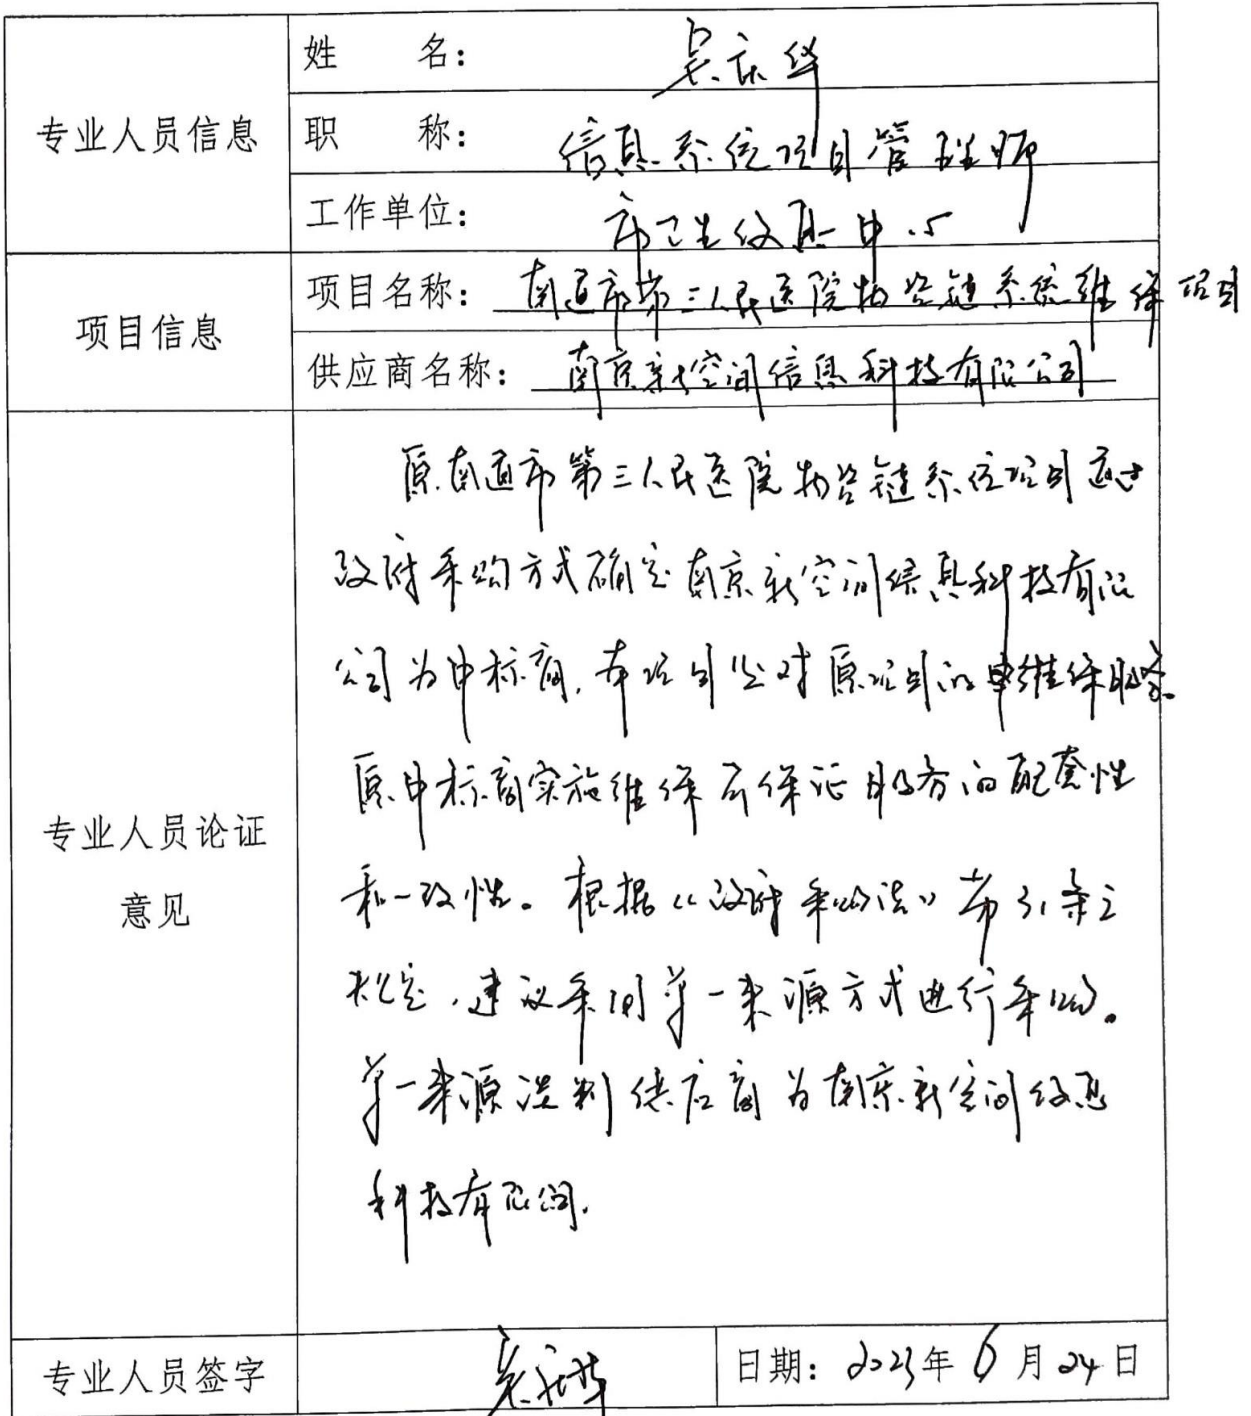 专业人员信息
姓 名: 吴庆华
职 称: 信息系统项目管理师
工作单位: 市卫生信息中心
项目信息
项目名称: 南通市第三人民医院物资链系统维保项目
供应商名称: 南京新空间信息科技有限公司
专业人员论证
意见
原南通市第三人民医院物资链系统项目通过
政府采购方式确定南京新空间信息科技有限
公司为中标商,本项目为对原项目的维保服务。
原中标商实施维保可保证服务的配套性
和一致性。根据《政府采购法》第31条之
规定,建议采用单一来源方式进行采购。
单一来源谈判供应商为南京新空间信息
科技有限公司.
专业人员签字
吴庆华
日期: 2023年6月24日